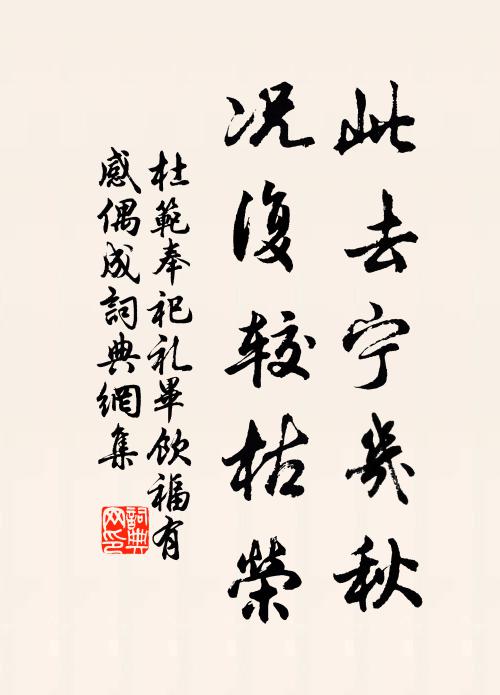 此去宁幾秋
况復较枯榮
杜範奉祀礼畢飲福有
感偶成詞典網集
詞典网印